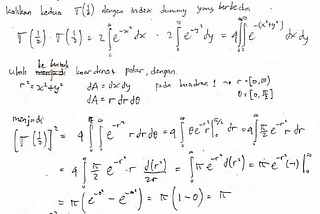 kalikan kedua Γ(1/2) dengan index dummy yang berbeda
Γ(1/2) · Γ(1/2) = 2∫₀^∞ e^{-x²} dx · 2∫₀^∞ e^{-y²} dy = 4∫₀^∞∫₀^∞ e^{-(x²+y²)} dx dy
Ubah ke bentuk koordinat polar, dengan
r² = x²+y² dA = dx dy pada kuadran 1 → r = [0,∞)
dA = r dr dθ θ = [0, π/2]
menjadi
[Γ(1/2)]² = 4∫₀^∞∫₀^{π/2} e^{-r²} r dr dθ = 4∫₀^∞ θ e^{-r²} r |₀^{π/2} dr = 4∫₀^∞ π/2 e^{-r²} r dr
= 4∫₀^∞ π/2 e^{-r²} · r d(r²)/2r = ∫₀^∞ π e^{-r²} d(r²) = π e^{-r²} (-1) |₀^∞
= π (e^{-0²} - e^{-∞²}) = π (1-0) = π